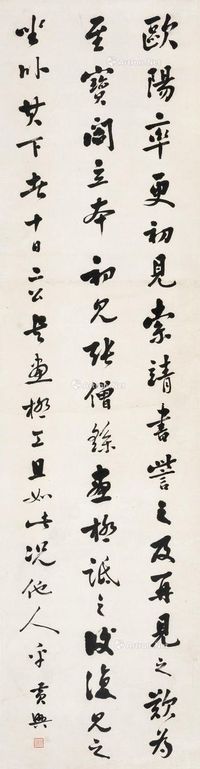 歐陽率更初見索靖書嘗之及再見之歎為
至寶閻立本初見張僧繇畫極詆之後復見之
坐卧其下者十日二公書畫極工且如此況他人乎黃興